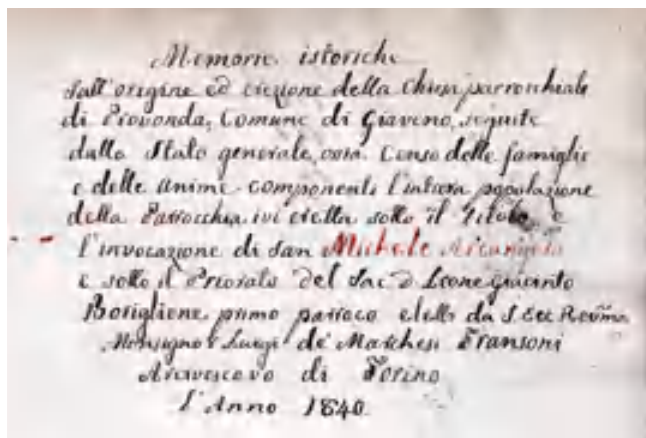 Memorie istoriche
sull'origine ed erezione della Chiesa parrochiale
di Provonda, Comune di Giaveno, seguite
dallo Stato generale, ossia Censo delle famiglie
e delle anime componenti l'intiera popolazione
della Parrocchia ivi eretta sotto il titolo e
l'invocazione di San Michele Arcangelo
e sotto il Priorato del Sac D. Leone Giacinto
Boriglione primo parroco eletto da S. Ecc. Revma
Monsignor Luigi de' Marchesi Fransoni
Arcivescovo di Torino
l'Anno 1840.